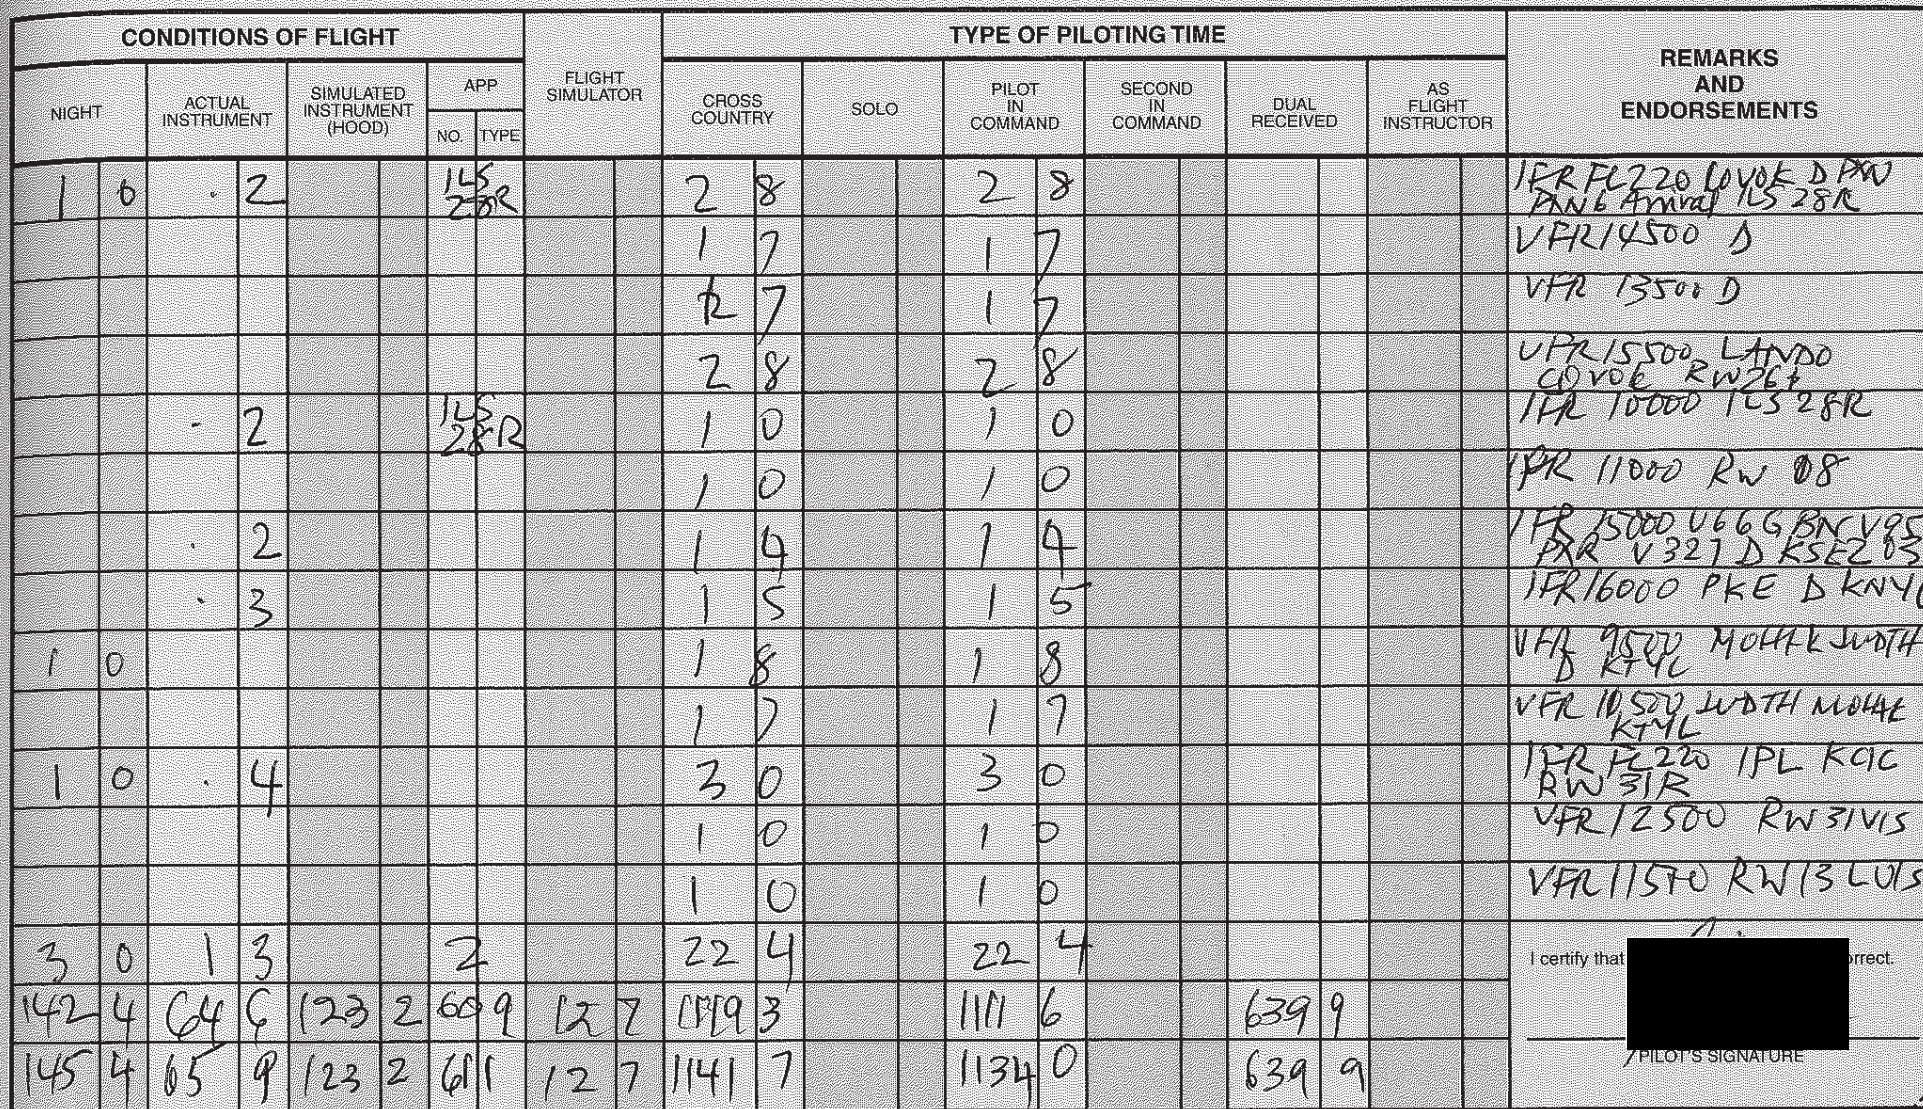 CONDITIONS OF FLIGHT
TYPE OF PILOTING TIME
REMARKS
AND
ENDORSEMENTS
NIGHT
ACTUAL
INSTRUMENT
SIMULATED
INSTRUMENT
(HOOD)
APP
NO. TYPE
FLIGHT
SIMULATOR
CROSS
COUNTRY
SOLO
PILOT
IN
COMMAND
SECOND
IN
COMMAND
DUAL
RECEIVED
AS
FLIGHT
INSTRUCTOR
1 0 . 2 ILS 28R 2 8 2 8 IFR FL220 COYOK D PXN
PXN6 Arrival ILS 28R
1 7 1 7 VFR 14500 D
7 1 7 VFR 13500 D
2 8 2 8 VFR 15500 LANDO
RW26
. 2 ILS 28R 1 0 1 0 IFR 10000 ILS 28R
1 0 1 0 IFR 11000 RW 08
. 2 1 4 1 4 IFR 15000 V66 GBN V95
PXR V327 D KSEZ 03
. 3 1 5 1 5 IFR 16000 PKE D KNYL
1 0 1 8 1 8 VFR 9500 MOHAK JUDTH
D KTYL
1 7 1 7 VFR 10,500 JUDTH MOHAK
KTYL
1 0 . 4 3 0 3 0 IFR FL220 IPL KCIC
RW 31R
1 0 1 0 VFR 12500 RW31 VIS
1 0 1 0 VFR 11500 RW13L VIS
3 0 1 3 2 22 4 22 4
I certify that orrect.
142 4 64 6 123 2 609 12 7 1119 3 1111 6 639 9
145 4 65 9 123 2 611 12 7 1141 7 1134 0 639 9
PILOT'S SIGNATURE